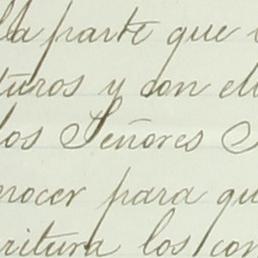 lla parte que
turos y con el
los Señores
nocer para qu
critura los con